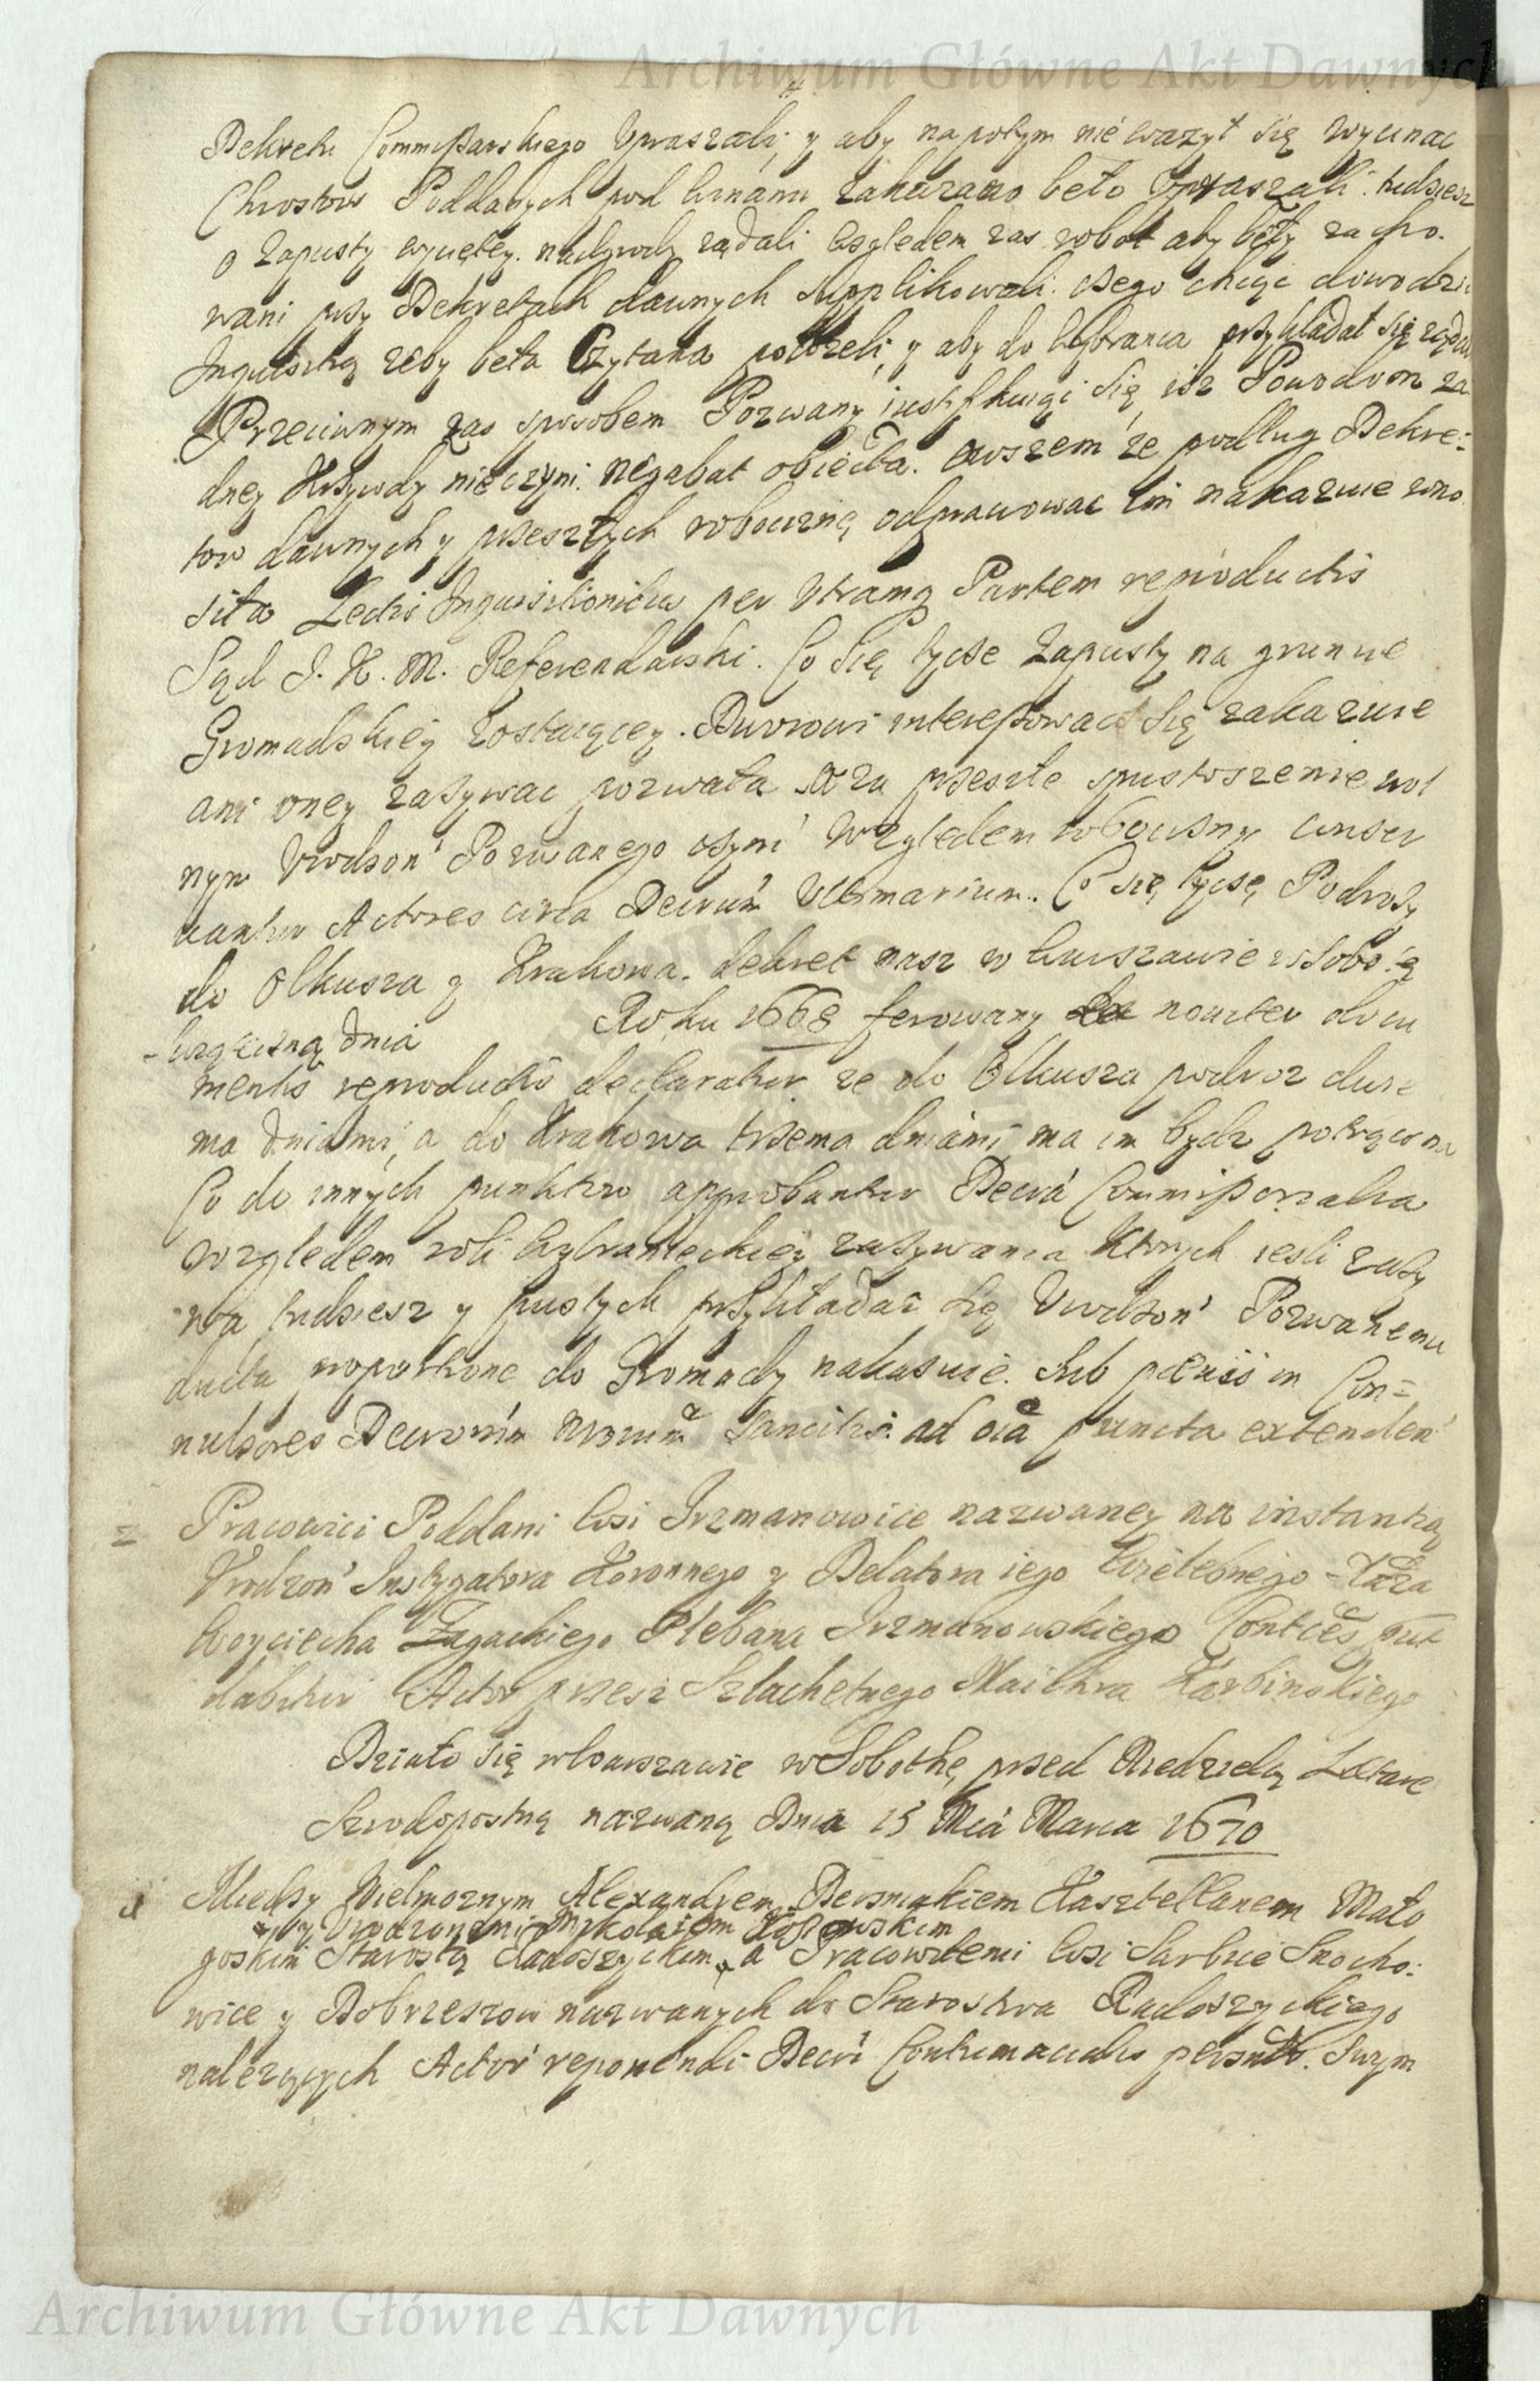 Archiwum Główne Akt Dawnych
Dekretu Commissarskiego Upraszali, y aby napotym nie wazył się wycinac
Chrostow Poddanych pod winami zakazano beło Upraszali. tudziesz
o zapusty wyciętey nadgrody ządali względem zas robot aby beły zacho.
wani przy Dekretach dawnych supplikowali. czego chcąc dowodzic
Inquisitią zeby beła Czytana potrzeli, y aby do Wybranca przykładał się
Przeciwnym zas sposobem Pozwany iustifikuiąc się, isz Powodom za
dney Krzywdy nieczyni. negabat obiecta. owszem ze podług Dekre=
tow dawnych y przeszłych roboczną odprawowac im nakazuie
sita Lectis Inquisitionibus per Utramq Partem reproductis
Sąd J. K. M. Referendarski. Co się tycze Zapusty na gruncie
Gromadskiey zostaiącey. Dworowi interessowac się zakazuie
ani oney zazywac pozwala. a za przeszłe spustoszenie wol
nym Urodzon' Pozwanego czyni Względem roboczny conser
vantur Actores circa Decretum Ultimarium. Co się tycze Podrozy
do Olkusza y Krakowa. dekret nasz w Warszawie w Sobo:tę
dnia Roku 1668 ferowany noviter docu
mentis reproductis declaratur ze do Olkusza podroz dwie
ma dniami, a do Krakowa trzema dniami ma im bydz potrącona
Co do innych punktow approbantur Decreta Commissorialia
względem roli Wybranieckiey zazywania ktorych iesli zazy
wa tudziesz y pustych przykładac się Urodzon' Pozwanemu
ducta proportione do Gromady nakazuie. Sub poenis in Con=
vulsores Decretorum sancitis. ad oia puncta extenden'
2 Pracowici Poddani Wsi Jrzmanowice nazwaney na instantią
Urodzon' Instygatora Koronnego y Delatora iego Wielebnego Xdza
Woyciecha Zagackiego Plebana Jrzmanowskiego
dabitur Actor przesz Szlachetnego Karbinskiego
Działo się w Warszawie w Sobothę przed Niedzielą Lætare
Szrodopostną nazwaną Dnia 15 Mca Marca 1670
1 Między Wielmoznym Alexandrem Kasztellanem Mało
y Urodzonemi Mikołaiem
goskim Starostą Radoszyckim a Pracowitemi Wsi Sarbice Snocho:
wice y Dobrzeszow nazwanych do Starostwa Radoszyckiego
nalezących Actor' reponendi Decreti Contumacialis Swym
Archiwum Główne Akt Dawnych